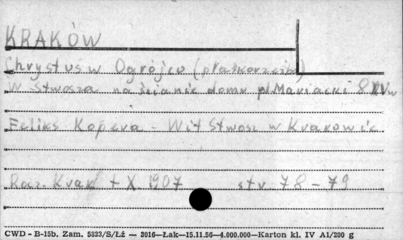 KRAKÓW
Chrystus w Ogrójcu (płaskorzeźba)
W. Stwosza na ścianie domu pl. Mariacki 8 XV w
Feliks Kopera - Wit Stwosz w Krakowie
Rocz. Krak. t X. 1907 str. 78 - 79
CWD - B-15b. Zam. 5323/S/Łź — 3016—Łak—15.11.56—4.000.000—Karton kl. IV A1/200 g